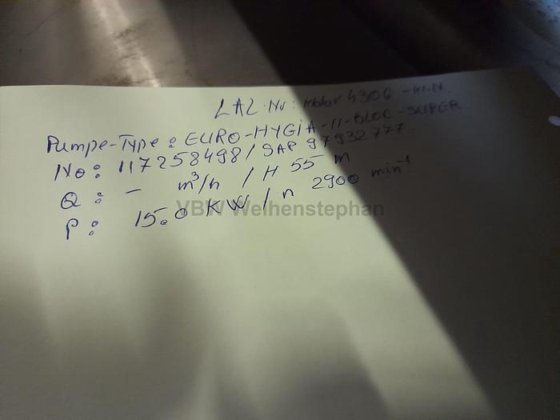 LAL Nr: Motor 4306
Pumpe-Type: EURO-HYGIA-II-BLOC-SUPER
No: 117258498/SAP 97932777
Q: - m³/h / H 55 M
P: 15.0 KW / n 2900 min⁻¹
VBW Weihenstephan